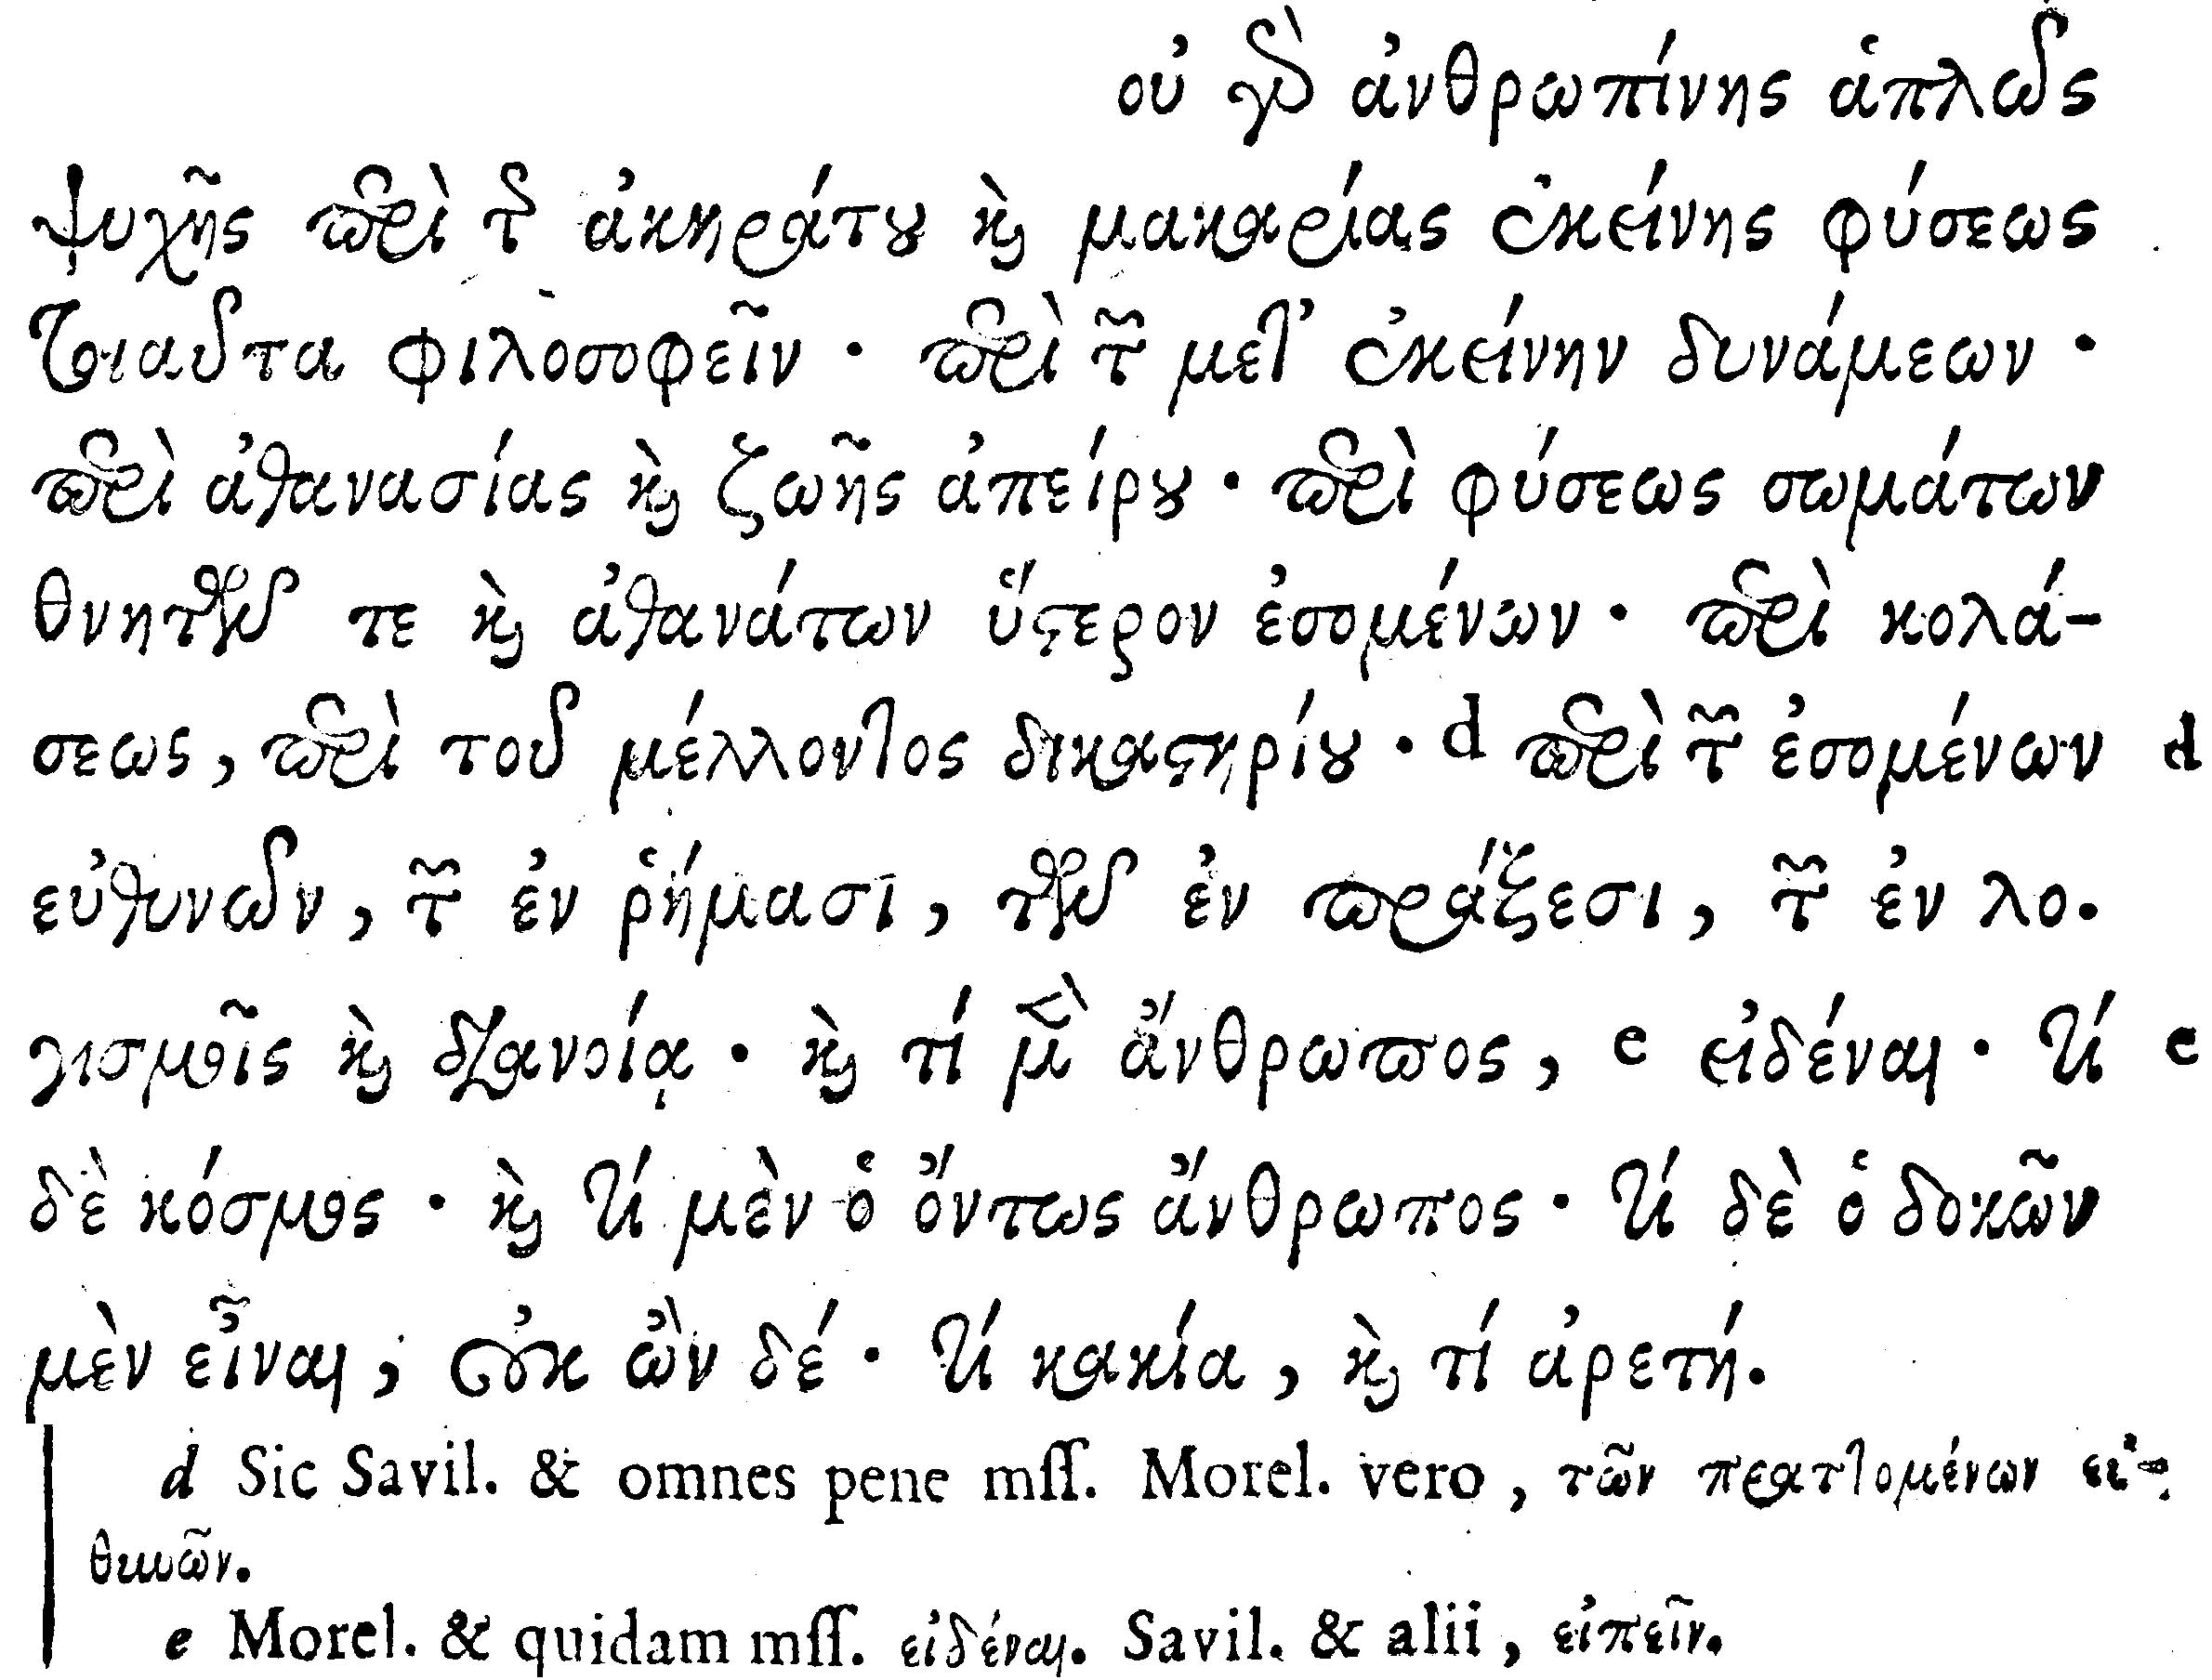 οὐ γὰρ ἀνθρωπίνης ἁπλῶς
ψυχῆς περὶ τῆς ἀκηράτου καὶ μακαρίας ἐκείνης φύσεως
τοιαῦτα φιλοσοφεῖν · περὶ τῶν μετ' ἐκείνην δυνάμεων ·
περὶ ἀθανασίας καὶ ζωῆς ἀπείρου · περὶ φύσεως σωμάτων
θνητῶν τε καὶ ἀθανάτων ὕστερον ἐσομένων · περὶ κολά-
σεως, περὶ τοῦ μέλλοντος δικαστηρίου · d περὶ τῶν ἐσομένων d
εὐθυνῶν, τῶν ἐν ῥήμασι, τῶν ἐν πράξεσι, τῶν ἐν λο.
γισμοῖς καὶ διανοίᾳ · καὶ τί μὲν ἄνθρωπος, e εἰδέναι · τί e
δὲ κόσμος · καὶ τί μὲν ὁ ὄντως ἄνθρωπος · τί δὲ ὁ δοκῶν
μὲν εἶναι, οὐκ ὢν δέ · τί κακία, καὶ τί ἀρετή.
d Sic Savil. & omnes pene mss. Morel. vero, τῶν πραττομένων εὐ-
θυνῶν.
e Morel. & quidam mss. εἰδέναι. Savil. & alii, εἰπεῖν.